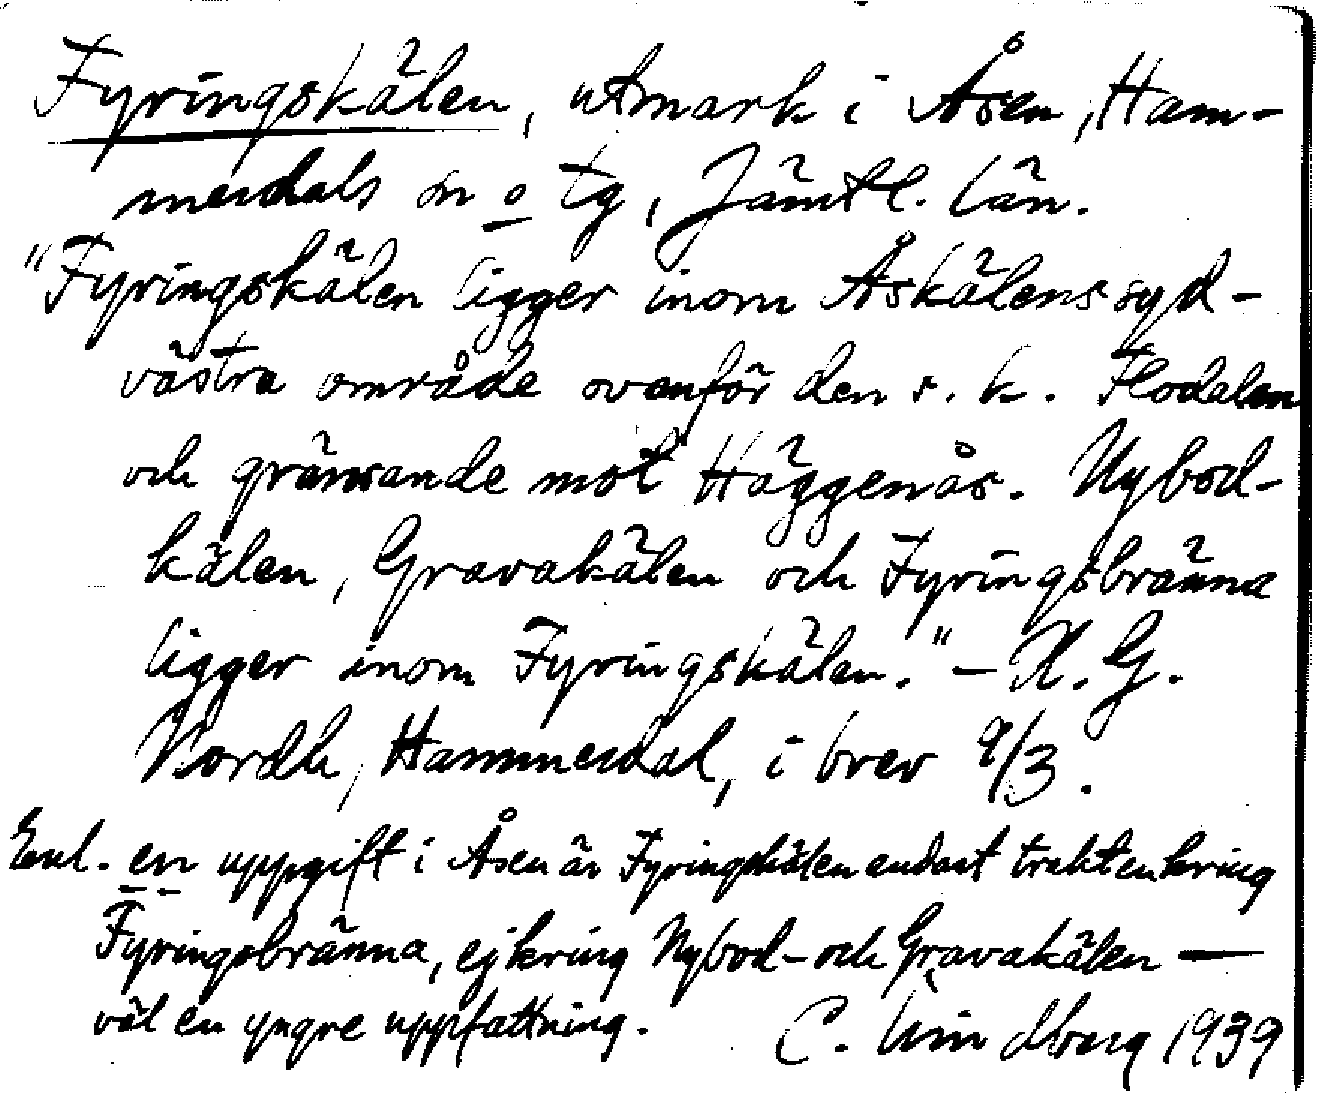 Fyringskälen, utmark i Åsen, Ham-
merdals sn o tg, Jämtl. län.
"Fyringskälen ligger inom Åskälens syd-
västra område ovanför den s. k. Flodalen
och gränsande mot Häggenås. Nybod-
kälen, Gravakälen och Fyringsbränna
ligger inom Fyringskälen." – N. G.
Nordh, Hammerdal, i brev 9/3.
Enl. en uppgift i Åsen är Fyringskälen endast trakten kring
Fyringsbränna, ej kring Nybod- och Gravakälen —
väl en yngre uppfattning. C. Lindberg 1939